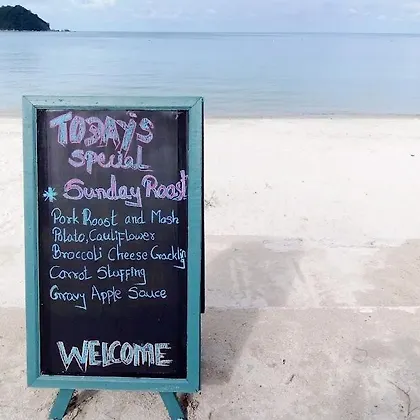 TODAY'S
special
* Sunday Roast
Pork Roast and Mash
Potato, Cauliflower
Broccoli Cheese Crackling
Carrot Stuffing
Gravy Apple Sauce
WELCOME